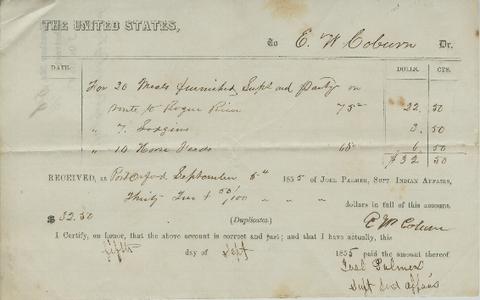 THE UNITED STATES,
To E. W Coburn Dr.
DATE. DOLLS. CTS.
For 30 Meals furnished Supt and Party on
route to Rogue River 75¢ 22.50
" 7. Lodgins 3.50
" 10 Horse Feeds 65 6.50
$32 50
RECEIVED, at Port Orford September 5th 1855 of JOEL PALMER, SUPT INDIAN AFFAIRS,
Thirty Two & 50/100 " " " dollars in full of this account.
$ 32.50 (Duplicates.) E W Coburn
I Certify, on honor, that the above account is correct and just; and that I have actually, this
fifth day of Sept 1855 paid the amount thereof
Joel Palmer
Supt Ind affairs